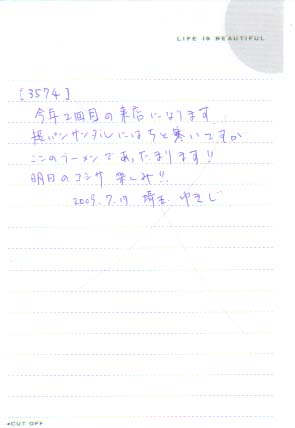 LIFE IS BEAUTIFUL
[3574]
今年2回目の来店になります
短パンサンダルにはちと寒いですが
ここのラーメンであったまります!!
明日のコンサ 楽しみ!!
2009.7.17 埼玉 ゆきじ
CUT OFF